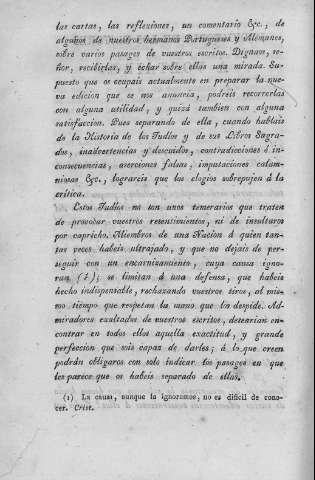 las cartas, las reflexiones, un comentario &c., de
algunos de nuestros hermanos Portugueses y Alemanes,
sobre varios pasages de vuestros escritos. Dignaos, se-
ñor, recibirlas, y echar sobre ellas una mirada. Su-
puesto que os ocupais actualmente en preparar la nue-
va edicion que se nos anuncia, podreis recorrerlas
con alguna utilidad, y quizá tambien con alguna
satisfaccion. Pues separando de ella, cuando hablais
de la Historia de los Judíos y de sus Libros Sagra-
dos, inadvertencias y descuidos, contradicciones é in-
consecuencias, aserciones falsas, imputaciones calum-
niosas &c., lograreis que los elogios sobrepujen á la
crítica.
Estos Judíos no son unos temerarios que traten
de provocar vuestros resentimientos, ni de insultaros
por capricho. Miembros de una Nacion á quien tan-
tas veces habeis ultrajado, y que no dejais de per-
seguir con un encarnizamiento, cuya causa igno-
ran (1); se limitan á una defensa, que habeis
hecho indispensable, rechazando vuestros tiros, al mis-
mo tiempo que respetan la mano que los despide. Ad-
miradores exaltados de vuestros escritos, desearian en-
contrar en todos ellos aquella exactitud, y grande
perfeccion que sois capaz de darles; á lo que creen
podrán obligaros con solo indicar los pasages en que
les parece que os habeis separado de ellas.
(1) La causa, aunque la ignoramos, no es dificil de cono-
cer. Crist.